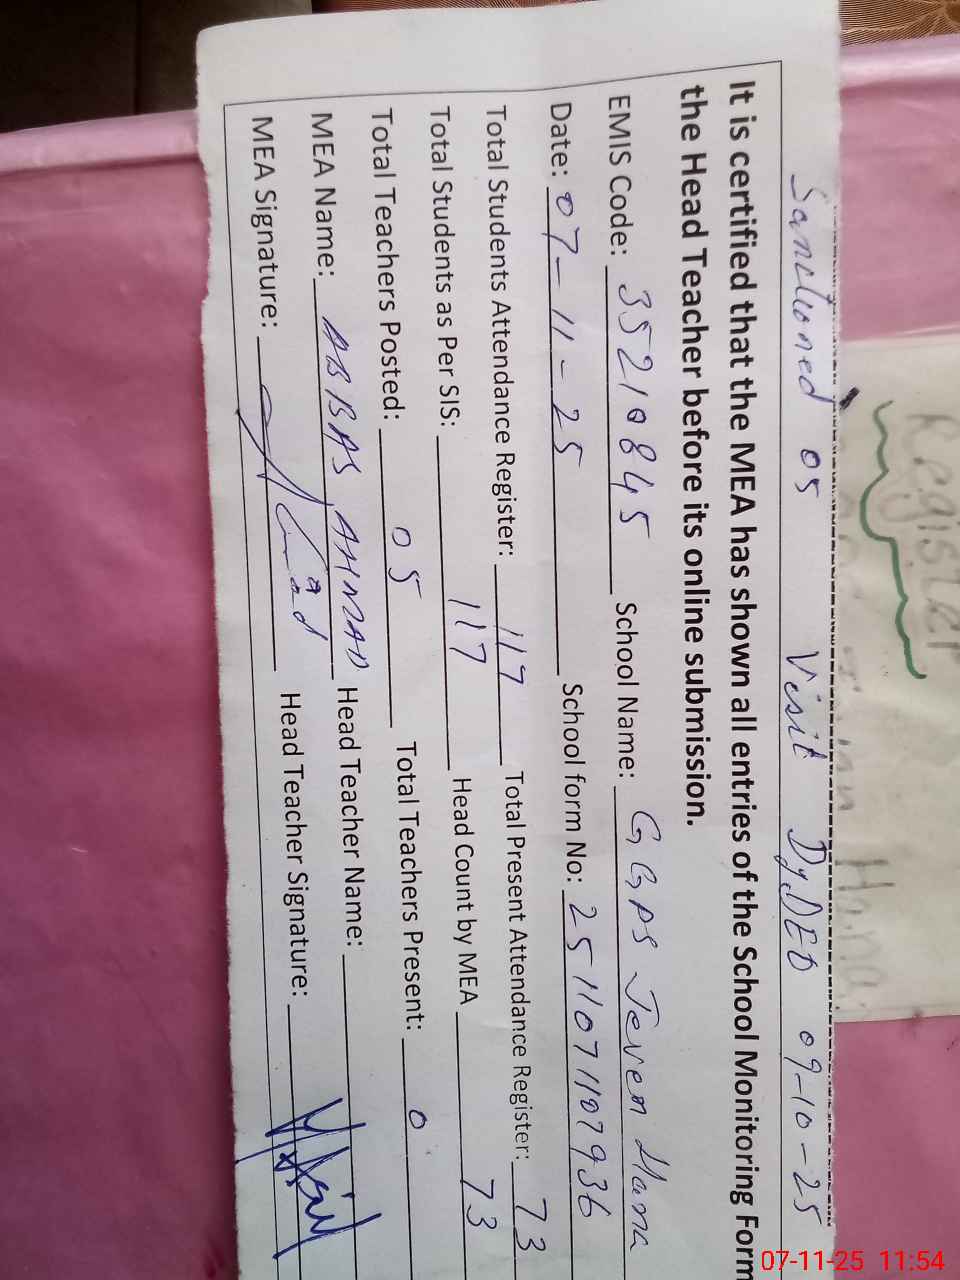 Sanctioned 05 Visit DyDEO 09-10-25
It is certified that the MEA has shown all entries of the School Monitoring Form
the Head Teacher before its online submission.
EMIS Code: 35210845 School Name: GGPS Jeven Hana
Date: 07-11-25 School form No: 2511071107936
Total Students Attendance Register: 117 Total Present Attendance Register: 73
Total Students as Per SIS: 117 Head Count by MEA 73
Total Teachers Posted: 05 Total Teachers Present: 0
MEA Name: ABBAS AHMAD Head Teacher Name:
MEA Signature: Head Teacher Signature:
Register
Hana
07-11-25 11:54